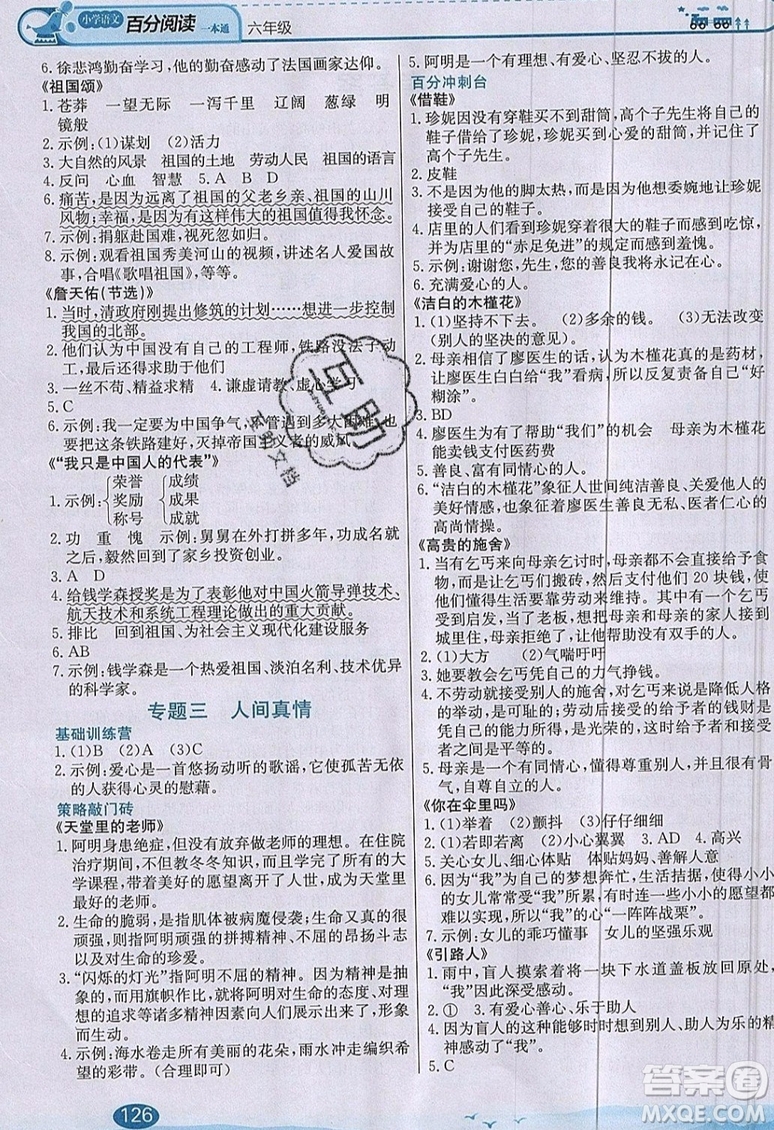 小学语文 百分阅读 一本通 六年级
6. 徐悲鸿勤奋学习，他的勤奋感动了法国画家达仰。
《祖国颂》
1. 苍莽 一望无际 一泻千里 辽阔 葱绿 明
镜般
2. 示例：(1)谋划 (2)活力
3. 大自然的风景 祖国的土地 劳动人民 祖国的语言
4. 反问 心血 智慧 5. A B D
6. 痛苦，是因为远离了祖国的父老乡亲、祖国的山川
风物；幸福，是因为有这个伟大的祖国值得我怀念。
7. 示例：捐躯赴国难，视死忽如归。
8. 示例：观看祖国秀美河山的视频，讲述名人爱国故
事，合唱《歌唱祖国》，等等。
《詹天佑(节选)》
1. 当时，清政府刚提出修筑的计划……想进一步控制
我国的北部。
2. 他们认为中国没有自己的工程师，铁路没法子动
工，最后还得求助于他们
3. 一丝不苟、精益求精 4. 谦虚请教、虚心学习
5. C
6. 示例：我一定要为中国争气，不管遇到多大困难，也
要把这条铁路建好，灭掉帝国主义者的威风
《“我只是中国人的代表”》
1. 示例：
荣誉
奖励
称号
成绩
成果
成就
2. 功 重 愧 示例：舅舅在外打拼多年，功成名就
之后，毅然回到家乡投资创业。
3. A D
4. 给钱学森授奖是为了表彰他对中国火箭导弹技术、
航天技术和系统工程理论做出的重大贡献。
5. 排比 回到祖国、为社会主义现代化建设服务
6. AB
7. 示例：钱学森是一个热爱祖国、淡泊名利、技术优异
的科学家。
专题三 人间真情
基础训练营
1. (1)B (2)A (3)C
2. 示例：爱心是一首悠扬动听的歌谣，它使孤苦无依
的人获得心灵的慰藉。
策略敲门砖
《天堂里的老师》
1. 阿明身患绝症，却没有放弃做老师的理想。在住院
治疗期间，他不仅教冬冬知识，而且认真地学习大
学课程，带着美好的愿望离开了人世，成了天堂里
最好的老师。
2. 生命的脆弱，是指肌体被病魔侵袭；生命有时又很
顽强，则指阿明顽强的拼搏精神、坚强的昂扬斗志以
及对生命的珍爱。
3. “闪烁的灯光”指阿明不屈的精神。因为精神是抽
象的，用灯光来形容，反映出阿明对生命、对理想
的追求等方面强烈的情感、态度、意志等，形象
而生动。
4. 示例：海水卷走所有美丽的花朵，雨水冲走编织希
望的彩带。(合理即可)
5. 阿明是一个有理想、有爱心、坚忍不拔的人。
百分冲刺台
《借鞋》
1. 珍妮因没有穿鞋买不到甜筒，高个子先生将自己的
鞋子借给了珍妮，珍妮买到心爱的甜筒，把鞋子还
给高个子先生。
2. 皮鞋
3. 不是因为他的脚太热，而是自己想委婉地让珍妮
穿自己的鞋子。
4. 店里的顾客对珍妮穿着很大的鞋子而感到吃惊，
并对店里的“赤足免进”的规定而感到羞愧。
5. 示例：谢谢您，先生，您真是太善良了。
6. 充满爱心的人。
《洁白的木槿花》
1. (1)坚持不下去。 (2)多余的钱。 (3)无法改变
(别人的坚决的意见)。
2. 母亲相信了廖医生所说的木槿花真的是药材，
让廖医生白白给“我”看病，感觉到自己真的“好
糊涂”。
3. BD
4. 廖医生为有了帮助“我们”的机会 母亲为木槿花
能卖钱支付医药费
5. 善良、富有同情心的人。
6. “洁白的木槿花”象征人世间纯洁善良、关爱他人的
美好情感，也象征廖医生善良无私、无私奉献的
高尚情操。
《高贵的施舍》
1. 当有乞丐来向母亲乞讨时，母亲不会直接给予食
物，而是让他们搬砖，然后支付他们 20 块钱，使
他们懂得要靠劳动来获得收入。其中有一个乞丐
受到启发后，当了老板，想把母亲和母亲的家人接到
城里住，母亲拒绝了，让他帮助没有双手的人。
2. (1)大方 (2)气喘吁吁
3. 她要教会乞丐凭自己的力气挣钱。
4. 不劳动就接受别人的施舍，对乞丐来说是降低人格
的举动，是可耻的；而用自己劳动得来的钱财则显
得无比高贵，自己也是光荣的。所以说，母亲的行
为是一种高贵的施舍。
5. 母亲是一个善良、有爱心、有智慧、懂得自立自
强、自尊自重的人。
《你在伞里吗》
1. (1)举着 (2)颤抖 (3)仔仔细细
2. (1)立即离去 (2)小心翼翼 3. AD 4. 高兴
5. 关心女儿、信任女儿 体贴妈妈、善解人意
6. 因为“我”为了追求所谓的梦想奔忙，总是拒绝
女儿，而女儿常常受“我”所累，有时连一些小小的愿望
也得不到满足，所以“我”的心“一阵阵战栗”。
7. 示例：女儿的乖巧懂事 女儿的坚强乐观
《引路人》
1. 雨中，盲人摸索着将一块下水道盖板放回原位，
“我”因此深受感动。
2. ① 3. 有爱心善心、乐于助人
4. 因为盲人的这种能够切身体会、助人为乐的精
神感动了“我”。
5. C
126
互助
答案圈
MXQE.COM